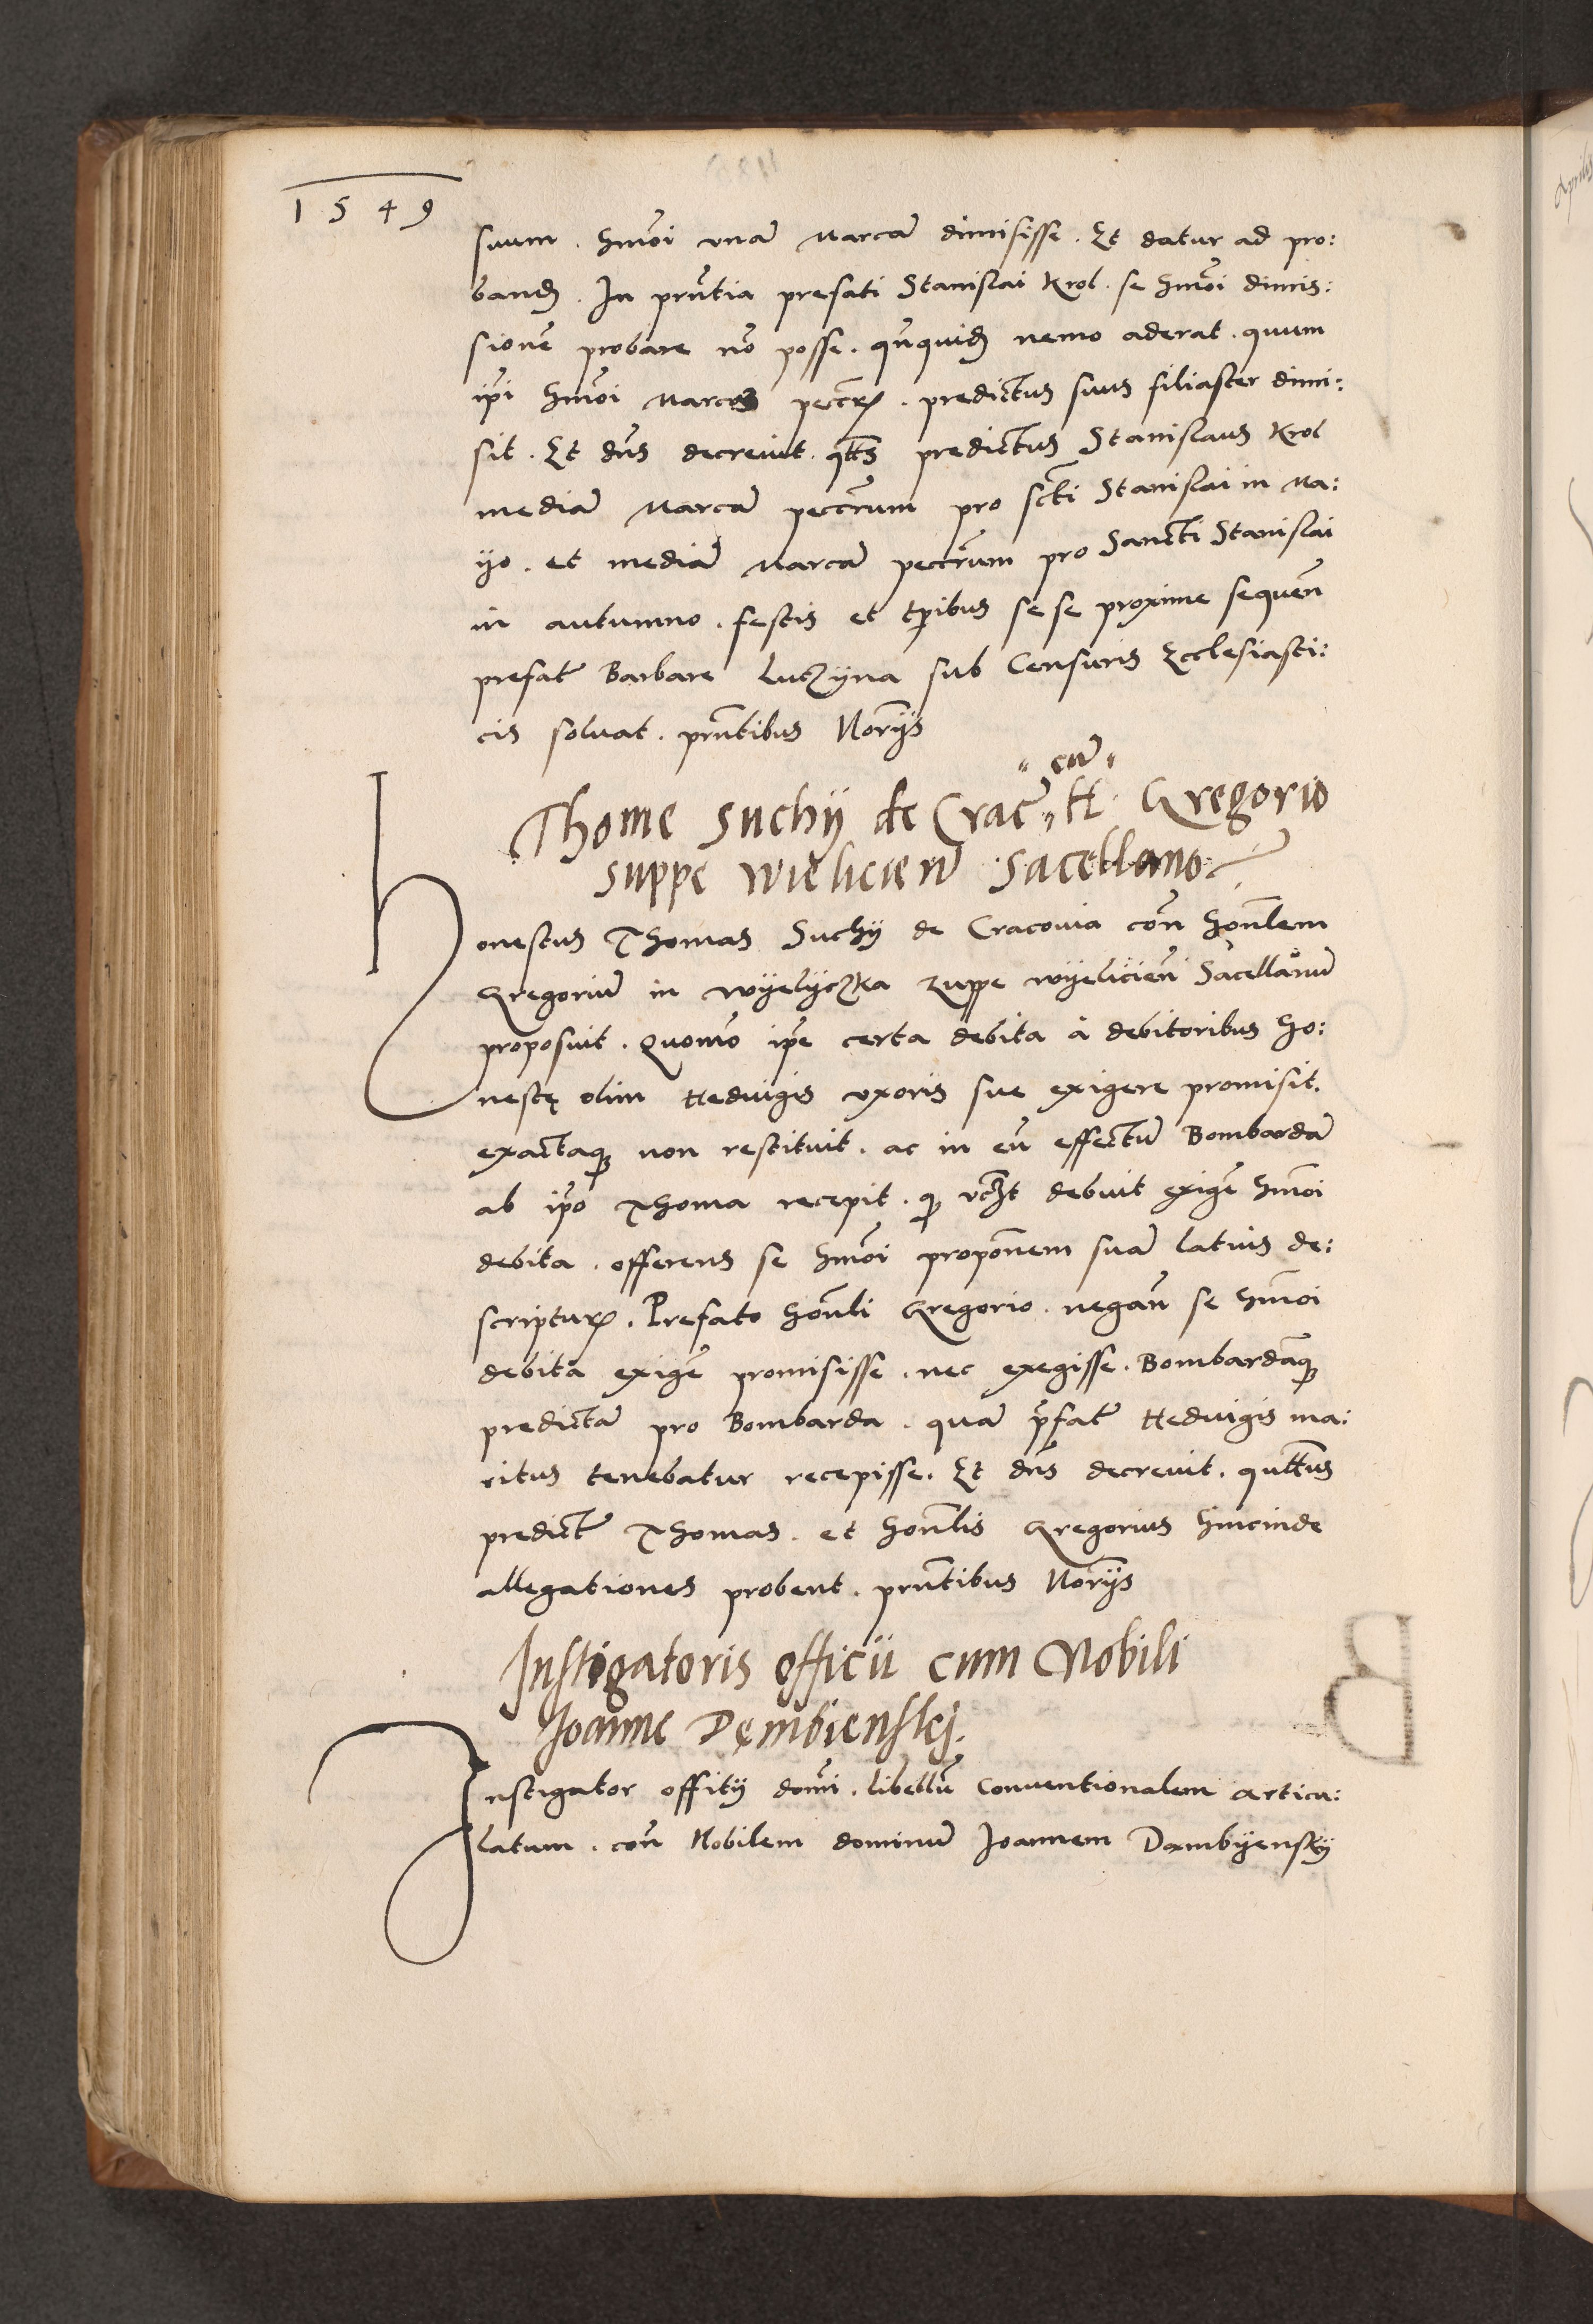 1549
suum. hmōi unā Marcā dimisisse. Et datur ad pro:
band. In prn̄tia prefati Stanislai Krol. se hmōi dimis:
sionē probare nō posse. qn̄quid nemo aderat. quum
ip̄i hmōi Marcas pecc̄r. predictus suus filiaster dimi:
sit. Et dn̄s decrevit. qt̄s predictus Stanislaus Krol
mediā Marcā pecc̄rum pro sc̄ti Stanislai in Ma:
ÿo. et mediā Marcā pecc̄rum pro Sancti Stanislai
in autumno. festis et tp̄ribus se se proxime sequen̄
prefat̄ Barbare Luczÿna sub Censuris Ecclesiasti:
cis soluat. prn̄tibus Nor̄ÿs
Thome Suchÿ de Crac̄ "cū" H. Gregorio
suppe wielicien̄ Sacellano
Honestus Thomas Suchÿ de Cracovia con̄ hon̄lem
Gregoriū in Wÿelÿczka zuppe wÿelicien̄ Sacellanū
proposuit. Quomō ip̄e certa debita à debitoribus ho:
nestę olim Hedvigis uxoris sue exigere promisit.
exactaq̄ non restituit. ac in eū effectū Bombardā
ab ip̄o Thoma recepit. q debuit exigē hmōi
debita. offerens se hmōi propōnem suā latius de:
scriptur. Prefato hon̄li Gregorio. negan̄ se hmōi
debita exigē promisisse. nec exegisse. Bombardāq̄
predictā pro Bombarda. quā p̄fat̄ Hedvigis ma:
ritus tenebatur recepisse. Et dn̄s decrevit. qut̄tus
predict̄ Thomas. et hon̄lis Gregorius hincinde
allegationes probent. prn̄tibus Nor̄ÿs
Instigatoris officii cum Nobili
Joanne Dęmbienskj.
Instigator offitÿ dom̄i. libellū conventionalem articu:
latum. con̄ Nobilem dominū Joannem Dambÿenskÿ